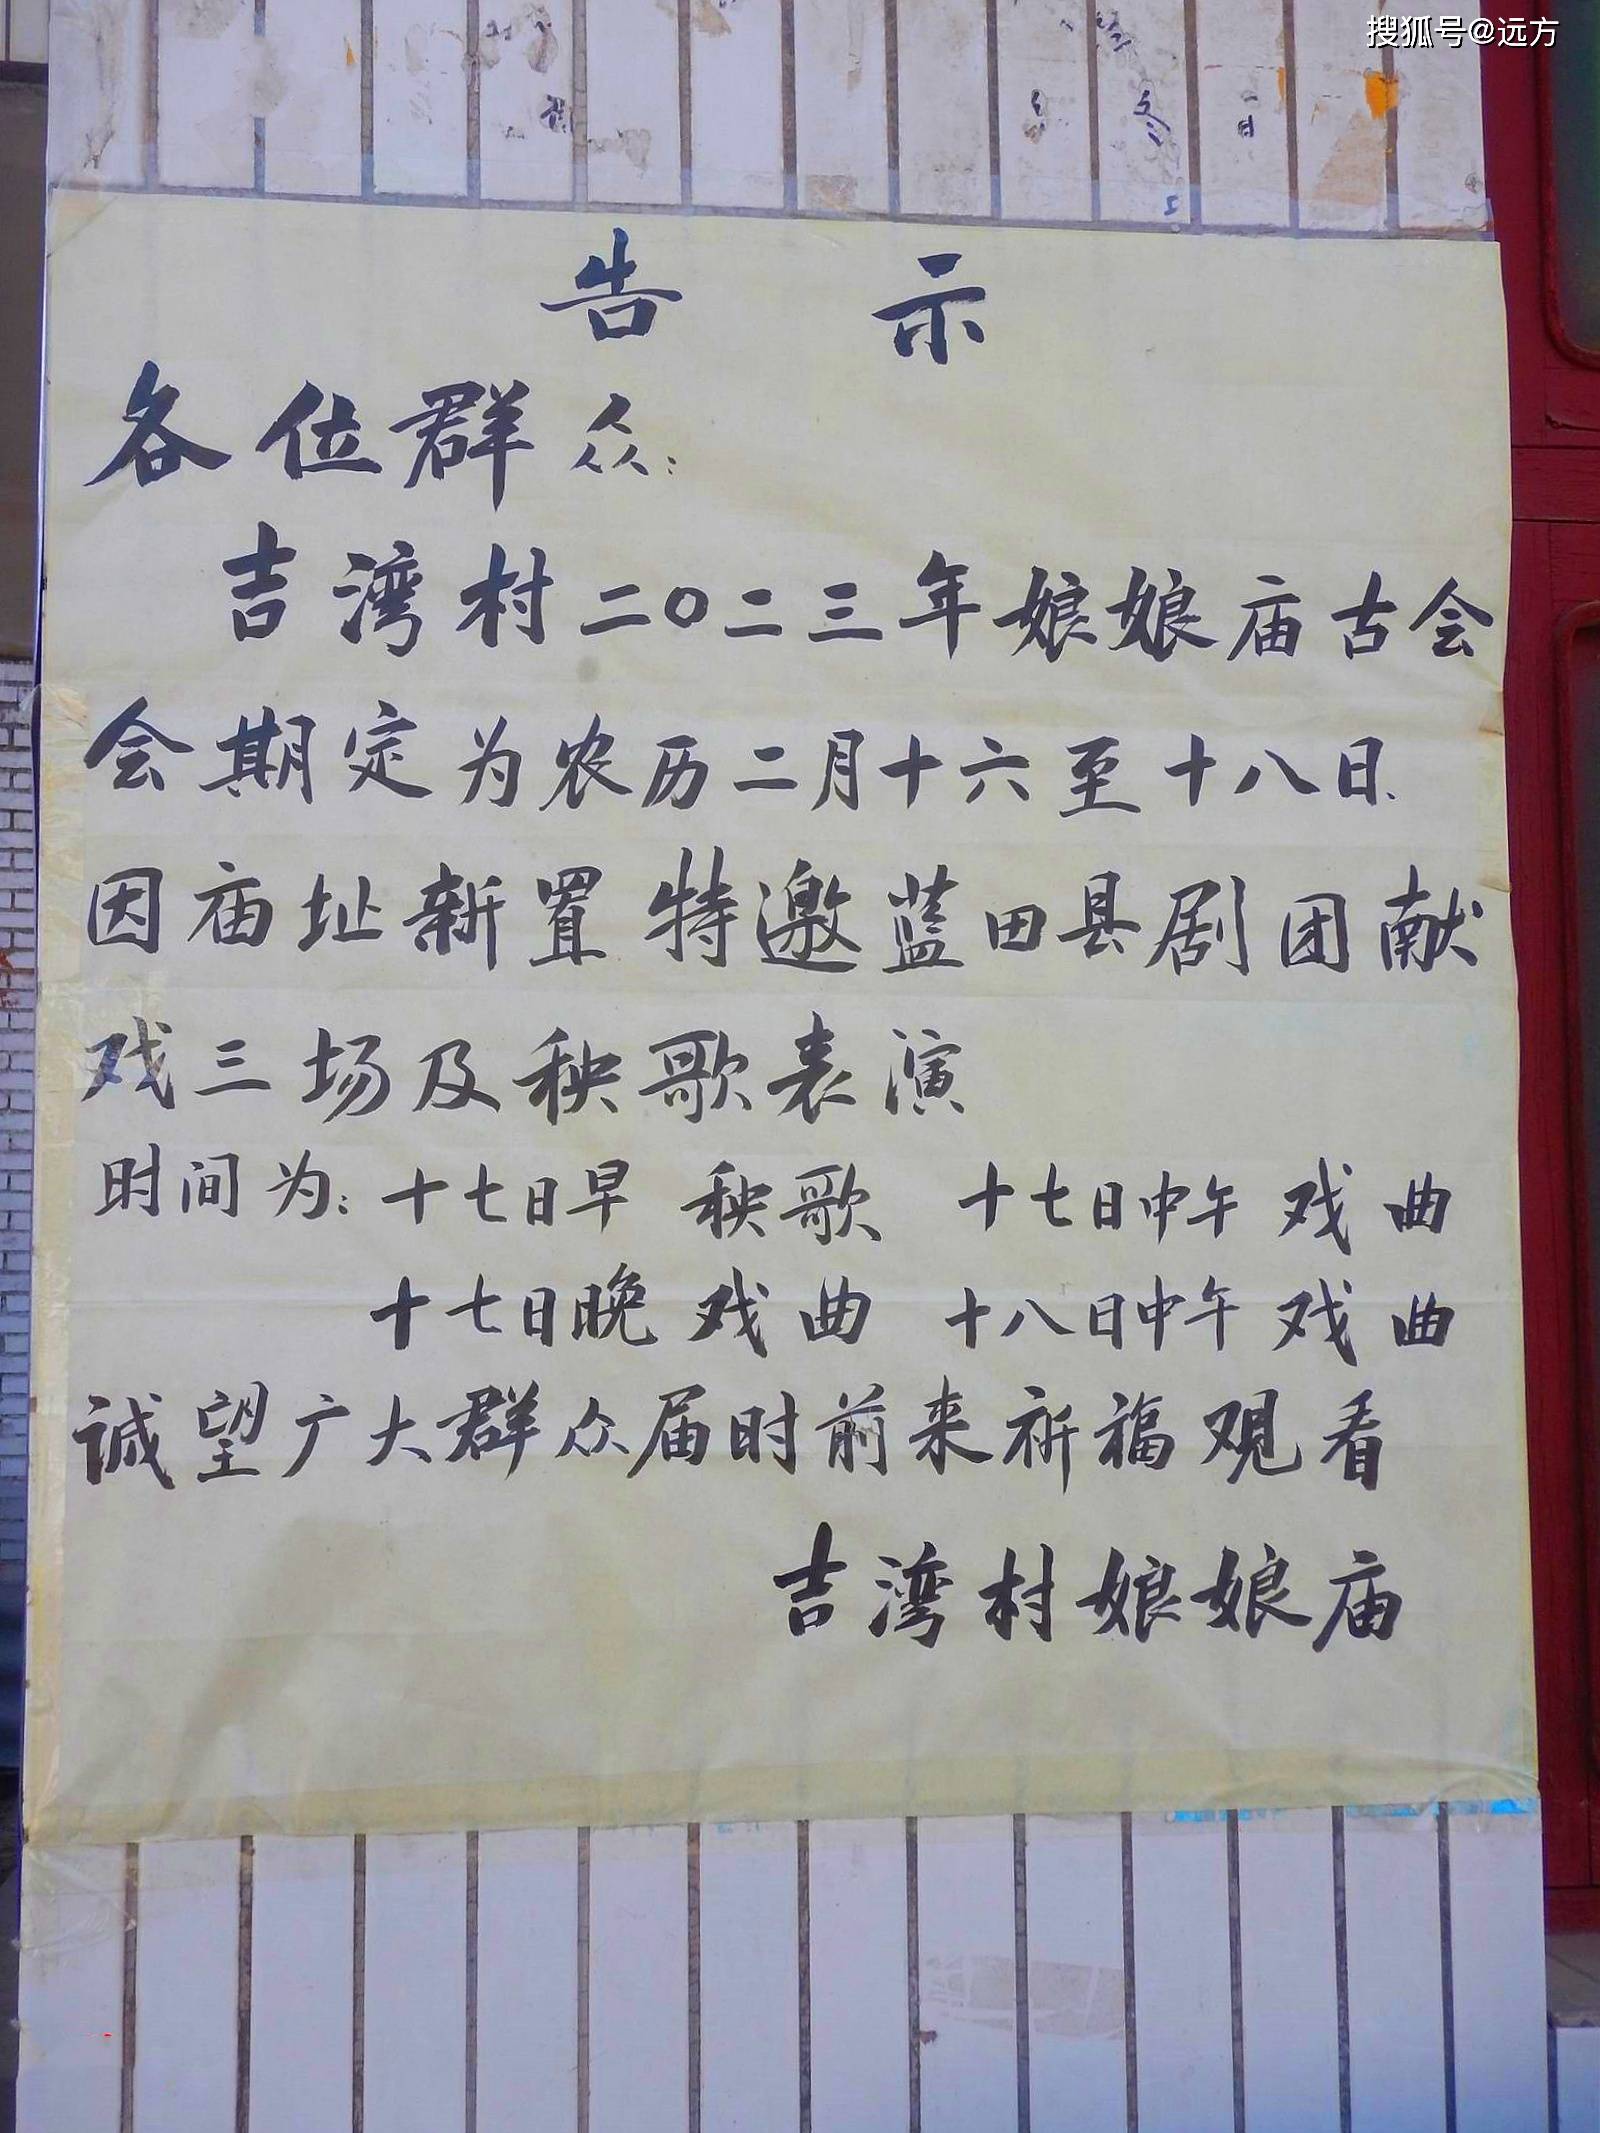 搜狐号@远方
冬
一日
告示
各位群众：
吉湾村二〇二三年娘娘庙古会
会期定为农历二月十六至十八日.
因庙址新置 特邀蓝田县剧团献
戏三场及秧歌表演
时间为：十七日早 秧歌 十七日中午 戏曲
十七日晚 戏曲 十八日中午 戏曲
诚望广大群众届时前来祈福观看
吉湾村娘娘庙